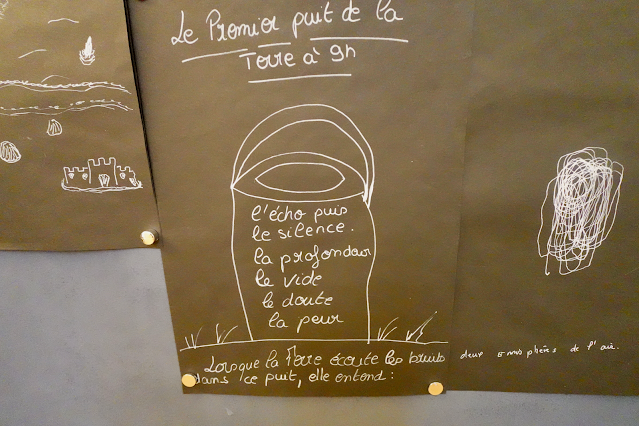 Le Premier puit de la
Terre à 9h
l'écho puis
le silence.
la profondeur
le vide
le doute
la peur
Lorsque la Terre écoute les bruits
dans ce puit, elle entend :
deux de l'air.